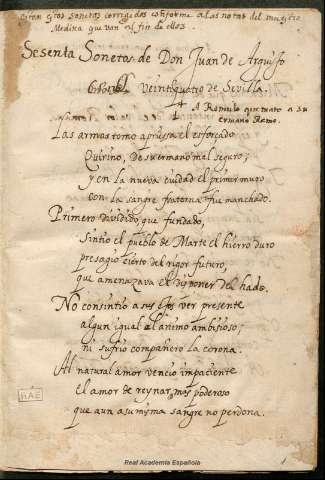 Estan otros sonetos corregidos conforme a las notas del maestro
Medina que van al fin de ellos.
Sesenta Sonetos de Don Juan de Arguijo
Veintiquatro de Sevilla.
A Romulo que mato a su
ermano Remo.
Las armas tomo apriesa el esforçado
Quirino, de su ermano mal seguro;
y en la nueva ciudad el primer muro
con la sangre fraterna fue manchado.
Primero dividido, que fundado,
Sintio el pueblo de Marte el hierro duro
presagio cierto del rigor futuro,
que amenazava el disponer del hado.
No consintio a sus ojos ver presente
algun igual al animo ambisioso;
ni sufrio compañero la corona.
Al natural amor vencio impaciente
el amor de reynar, mas poderoso
que aun a su misma sangre no perdona.
RAE
1
Real Academia Española